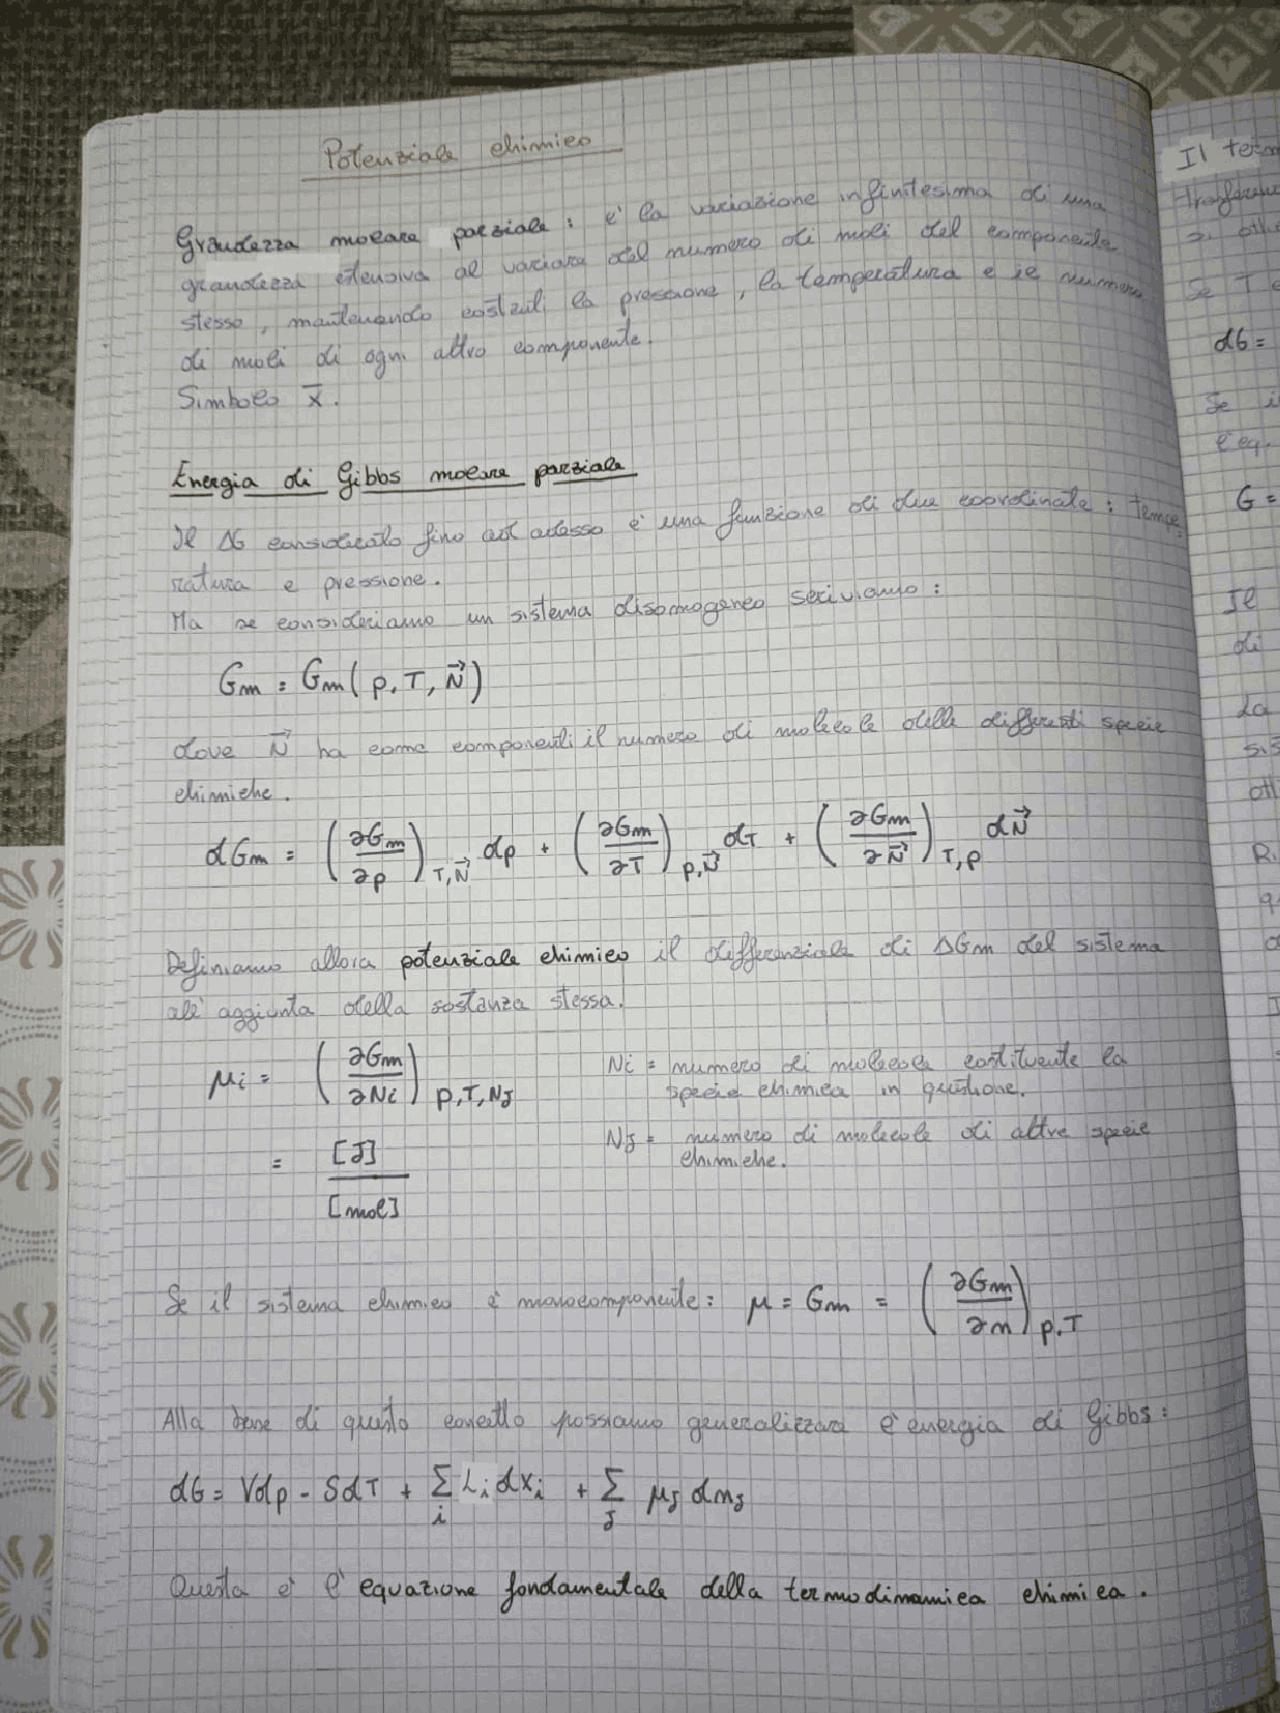 Potenziale chimico
Grandezza molare parziale : e' la variazione infinitesima di una
grandezza estensiva al variare del numero di moli del componente
stesso , mantenendo costanti la pressione , la temperatura e il numero
di moli di ogni altro componente.
Simbolo X̄ .
Energia di Gibbs molare parziale
Il ΔG considerato fino ad adesso e' una funzione di due coordinate : tempe
ratura e pressione .
Ma se consideriamo un sistema disomogeneo scriviamo :
Gm = Gm( p, T, N⃗ )
dove N⃗ ha come componenti il numero di molecole delle differenti specie
chimiche .
dGm = (∂Gm/∂p)T,N⃗ dp + (∂Gm/∂T)p,N⃗ dT + (∂Gm/∂N⃗)T,p dN⃗
Definiamo allora potenziale chimico il differenziale di ΔGm del sistema
all' aggiunta della sostanza stessa.
μi = (∂Gm/∂Ni)p,T,NJ
Ni = numero di molecole costituente la
specie chimica in questione.
NJ = numero di molecole di altre specie
chimiche.
= [J]/[mol]
Se il sistema chimico è monocomponente : μ = Gm = (∂Gm/∂n)p,T
Alla base di questo concetto possiamo generalizzare l' energia di Gibbs :
dG = Vdp - SdT + ∑i Li dxi + ∑J μJ dnJ
Questa e' l' equazione fondamentale della termodinamica chimica .
Il
Se T
dG =
Se
l'eq.
G =
Il
di
La